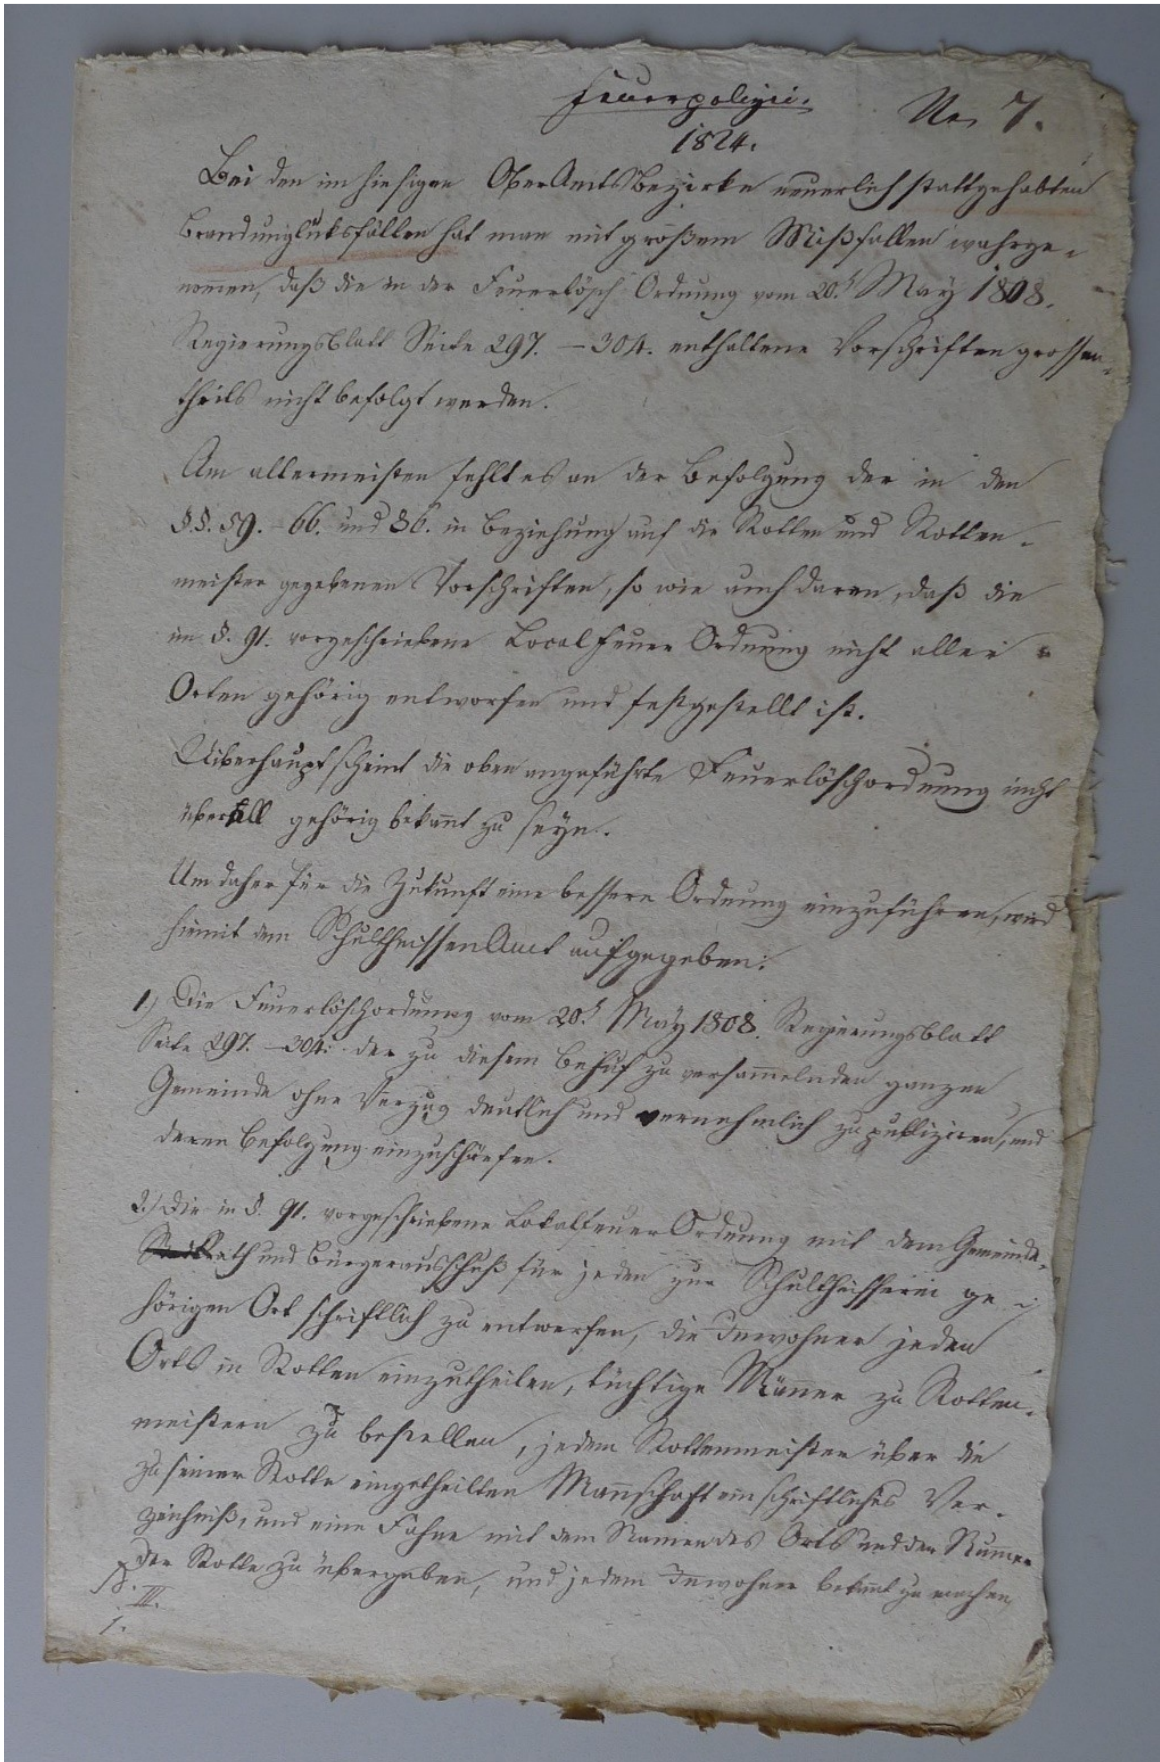 Feuerpolizei.
No 7.
1824.
Bei den im hiesigen OberAmtsBezirke neuerlich stattgehabten
Brandunglüksfällen hat man mit großem Mißfallen wahrge-
nommen, daß die in der Feuerlösch Ordnung vom 20.t May 1808.
Regierungsblatt Seite 297. – 304. enthaltene Vorschriften grossen-
theils nicht befolgt werden.
Am allermeisten fehlt es an der Befolgung der in den
§§. 59. – 66. und 86. in Beziehung auf die Rotten und Rotten-
meister gegebenen Vorschriften, so wie auch daran, daß die
im §. 91. vorgeschriebene Local Feuer Ordnung nicht aller
Orten gehörig entworfen und festgestellt ist.
Ueberhaupt scheint die oben angeführte Feuerlöschordnung nicht
überall gehörig bekannt zu seyn.
Um daher für die Zukunft eine bessere Ordnung einzuführen, wird
hiemit dem SchultheissenAmt aufgegeben:
1.) Die Feuerlöschordnung vom 20.t May 1808. Regierungsblatt
Seite 297. – 304. der zu diesem Behuf zu versammelnden ganzen
Gemeinde ohne Verzug deutlich und vernehmlich zu publiziren, und
deren Befolgung einzuschärfen.
2.) Die in §. 91. vorgeschriebene LokalfeuerOrdnung mit dem Gemeinde-
Rath und Bürgerausschuß für jeden zur Schultheisserei ge-
hörigen Ort schriftlich zu entwerfen, die Inwohner jeden
Orts in Rotten einzutheilen, tüchtige Männer zu Rotten-
meistern zu bestellen, jedem Rottenmeister über die
zu seiner Rotte eingetheilten Mannschaft ein schriftliches Ver-
zeichniß, und eine Fahne mit dem Namen des Orts und der Numer
der Rotte zu übergeben, und jedem Inwohner bekannt zu machen,
III.
1.